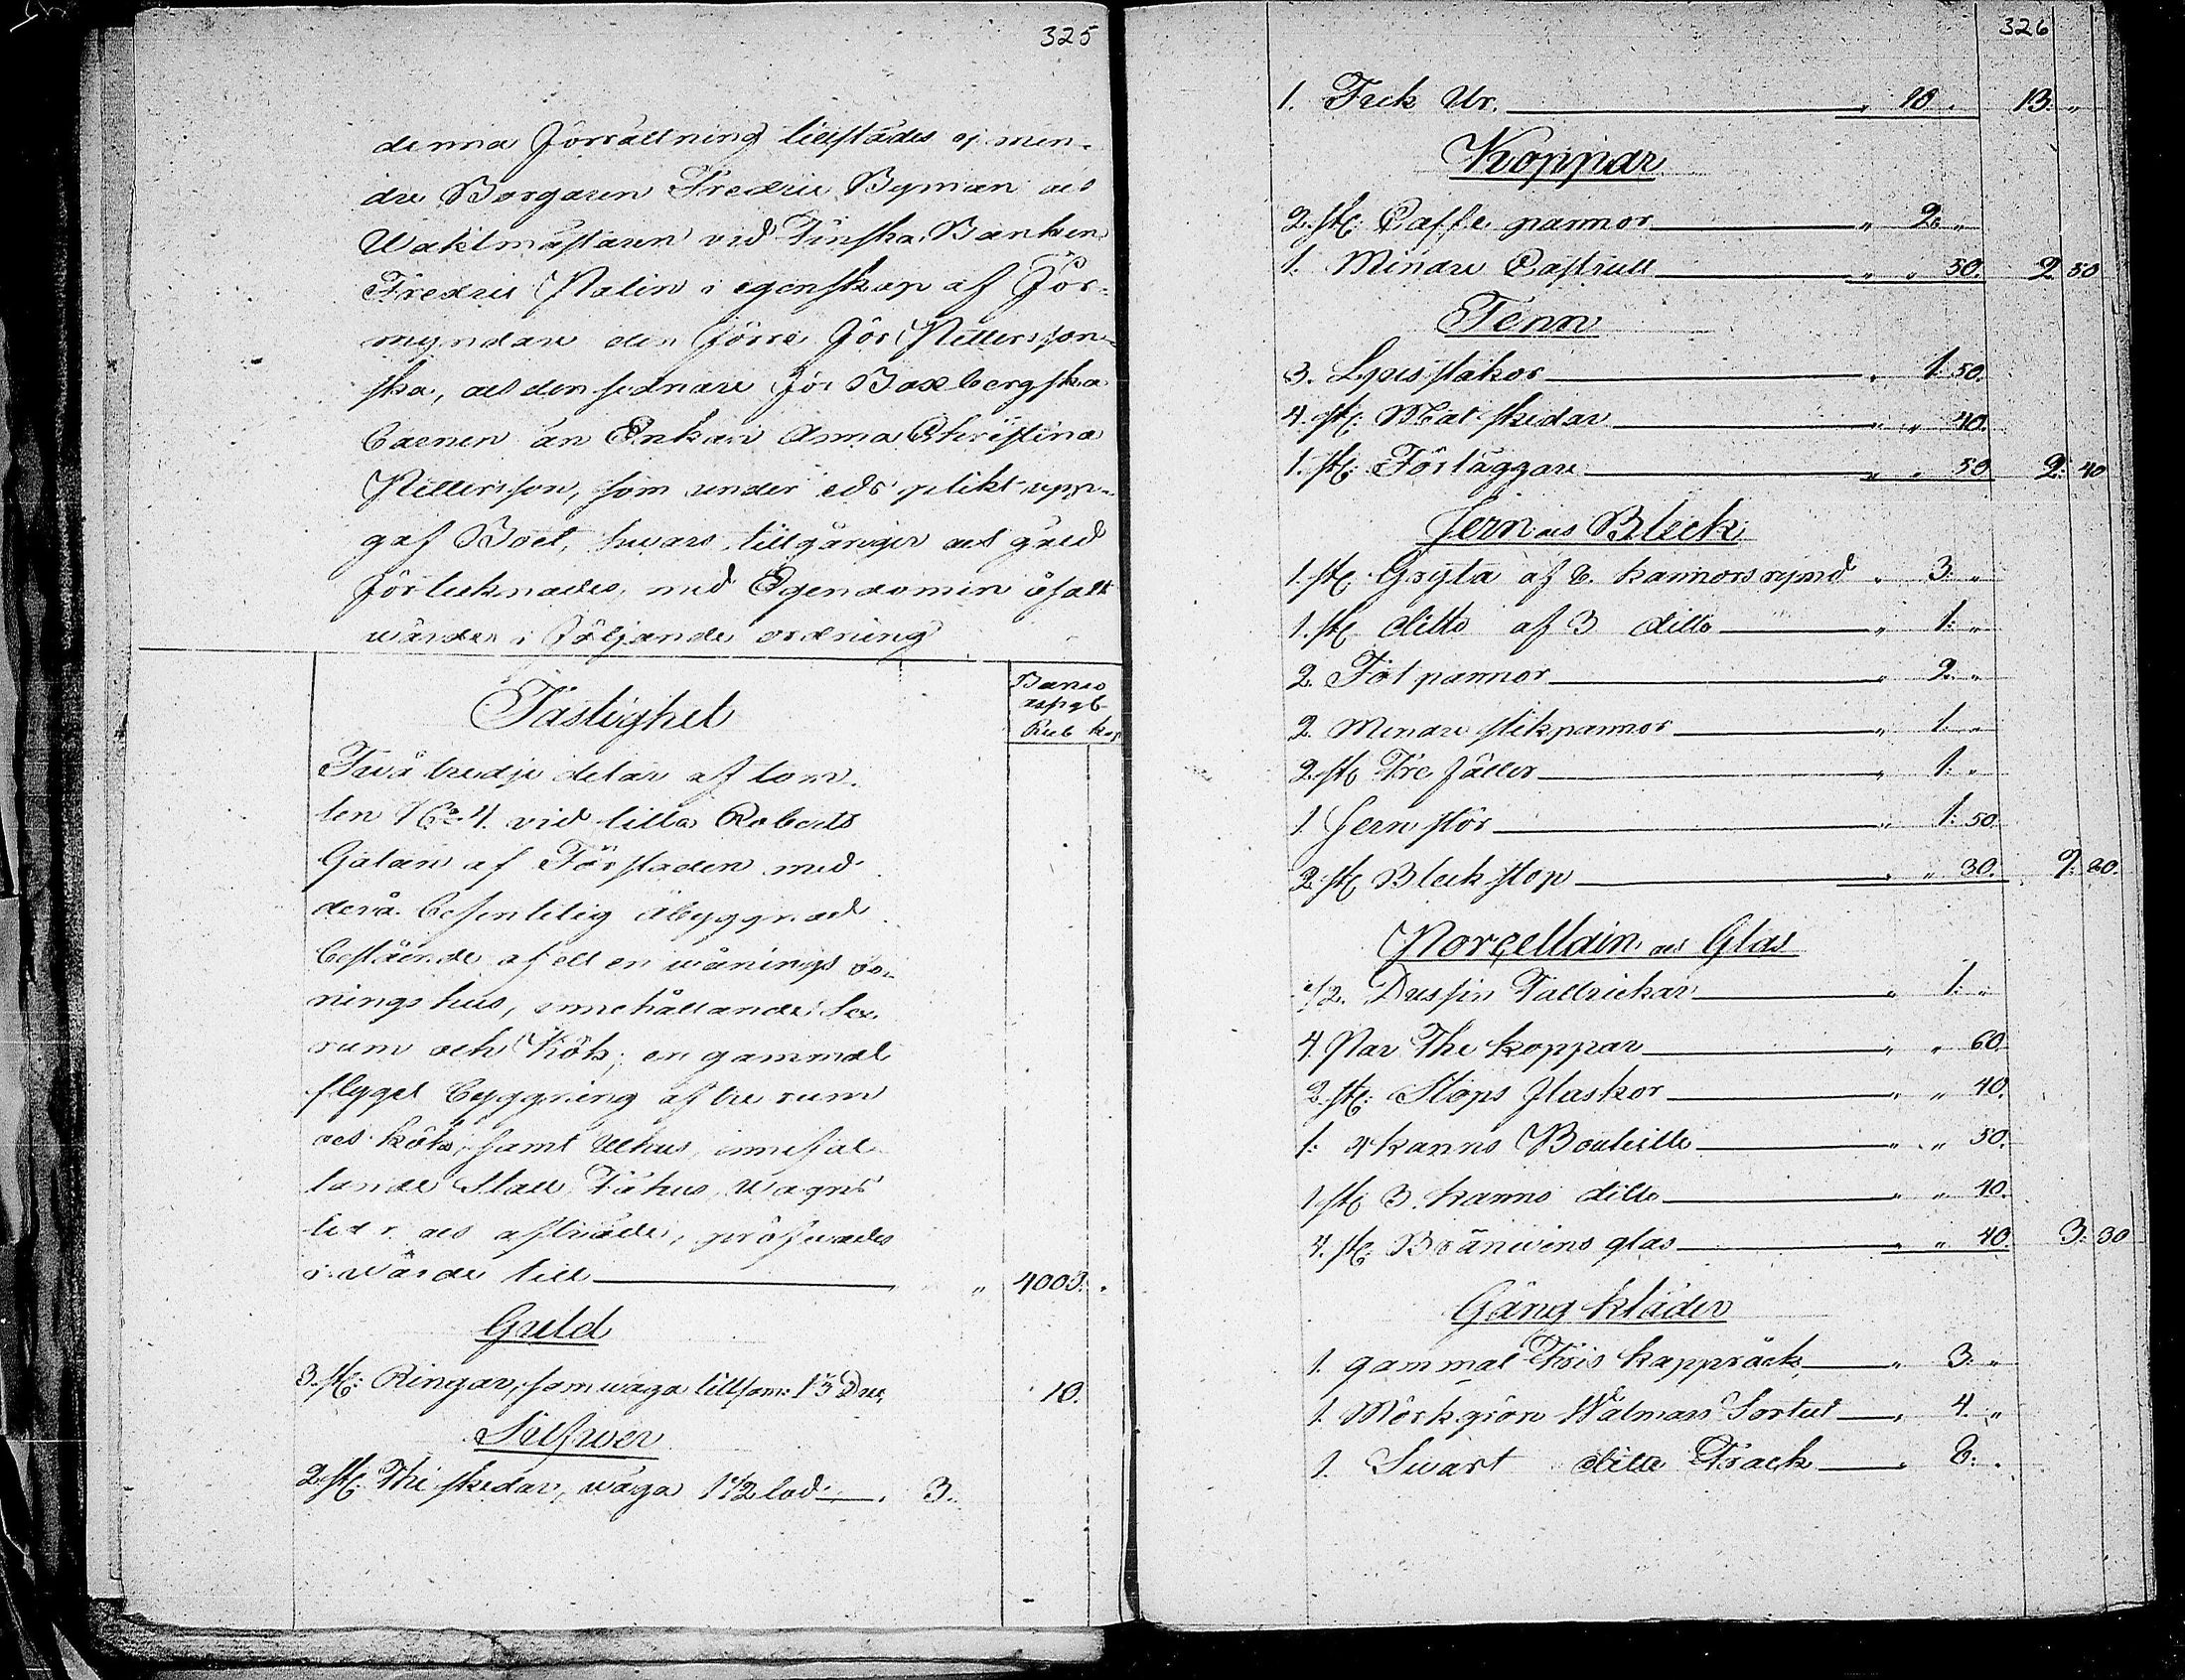 325
denna förrättning tillstädes ej min-
dre Borgaren Fredric Byman och
Waktmästaren vid Finska Banken
Fredric Malin i egenskap af För-
myndare den förre för Pettersson-
ska, och den sednare för Boxbergska
barnen än Enkan Anna Christina
Pettersson, som under eds plikt upp-
gaf Boet, hwars tillgångar och gäld
förteknades, med Egendomen åsatt
wärde i följande ordning
Banco
assgb
Fastighet
Rub kop
Två tredje delar af tom-
ten No 4. vid lilla Roberts
Gatan af Förstaden med
derå befintelig åbyggnad
bestående af ett en wånings bo-
ningshus, innehållande Sex
rum och Kök; en gammal
flygel byggning af tre rum
och kök, samt uthus, innefat-
tande Stall, Fähus, Wagns
lider och afträde, pröfwades
i wärde till " 4000. "
Guld
3. st: Ringar, som wäga tillsam: 1 1/3 Duc. 10.
Silfwer
2 st: The skedar, wäga 1 1/2 lod " 3.
326
1. Fick Ur. " 10 " 13. "
Koppar
2. st: Caffe pannor " 2. "
1. Mindre Castrull " " 50. 2. 50
Tenn
3. Ljusstakor " 1: 50.
4. st: Mat skedar " " 40.
1. st: Förläggare " " 50 2: 40
Jern och Bleck
1. st: Gryta af 6. kannors rymd " 3: "
1. st: ditto af 3 ditto " 1: "
2. Fot pannor " 2. "
2. Mindre stekpannor " 1: "
2. st: Tre fötter " 1: "
1. Jern stör " 1: 50.
2. st: Bleck stop " " 30. 9: 80.
Porcellain och Glas
1/2. Dussin Tallrickar " 1: "
4. Par The koppar " " 60.
2. st: Stops flaskor " " 40.
1: 4 kanns Bouteille " " 50.
1 st: 3. kanns ditto " " 40.
4. st: Bränwins glas " " 40. 3: 30
Gång kläder
1. gammal Fris kappråck " 3: "
1. Mörkgrön Walmars Sortut " 4. "
1. Swart ditto Frack " 6: "